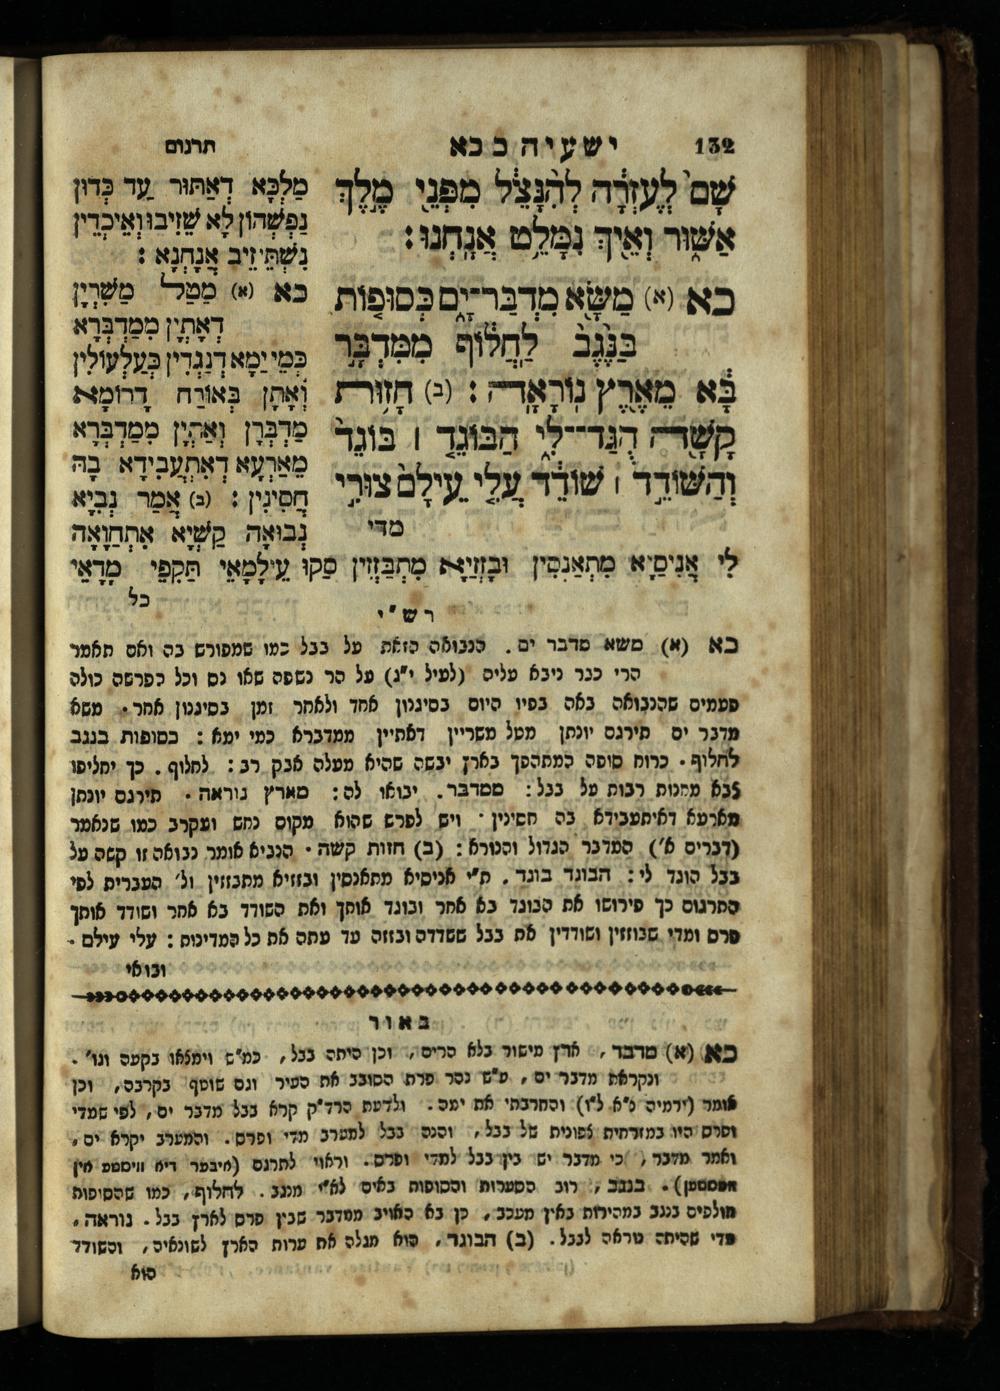 132 ישעיה כ כא תרגום
שָׁם לְעֶזְרָה לְהִנָּצֵל מִפְּנֵי מֶלֶךְ
אַשּׁוּר וְאֵיךְ נִמָּלֵט אֲנָחְנוּ :
כא (א) מַשָּׂא מִדְבַּר־יָם כְּסוּפוֹת
בַּנֶּגֶב לַחֲלוֹף מִמִּדְבָּר
בָּא מֵאֶרֶץ נוֹרָאָה : (ב) חָזוּת
קָשָׁה הֻגַּד־לִי הַבּוֹגֵד ׀ בּוֹגֵד
וְהַשּׁוֹדֵד ׀ שׁוֹדֵד עֲלִי עֵילָם צוּרִי
מדי
מַלְכָּא דְאַתּוּר עַד כְּדוּן
נַפְשְׁהוֹן לָא שֵׁזִיבוּ וְאֵיכְדֵין
נִשְׁתֵּיזֵיב אֲנָחְנָא :
כא (א) מַטַל מַשִּׁרְיָן
דְאָתְיָן מִמַּדְבְּרָא
כְּמֵי יַמָּא דְנָגְדִין כְּעַלְעוֹלִין
וְאָתָן בְּאוֹרַח דָרוֹמָא
מַדְבְּרָן וְאַהְיָן מִמַּדְבְּרָא
מֵאַרְעָא דְאִתְעֲבִידָא בָהּ
חֲסִינִין : (ב) אֲמַר נְבִיָּא
נְבוּאָה קַשְׁיָא אִתְחַוָאָה
לִי אֲנִיסַיָּא מִתְאַנְסִין וּבָזְזַיָּא מִתְבַּזְזִין סַקוּ עֵילָמָאֵי תַּקִפֵּי מָדָאֵי
כל
רש"י
כא (א) משא מדבר ים . הנבואה הזאת על בבל כמו שמפורש בה ואם תאמר
הרי כבר ניבא עליה (לעיל י"ג) על הר נשפה שאו נס וכל הפרשה כולה
פעמים שהנבואה באה בפיו היום בסיגנון אחד ולאחר זמן בסיגנון אחר . משא
מדבר ים תירגם יונתן מטל משריין דאתיין ממדברא כמי ימא : כסופות בנגב
לחלוף . כרוח סופה המתהפך בארץ יבשה שהיא מעלה אבק רב : לחלוף . כך יחליפו
צבא מחנות רבות על בבל : ממדבר . יבואו לה : מארץ נוראה . תירגם יונתן
מארעא דאיתעבידא בה חסינין . ויש לפרש שהוא מקום נחש ועקרב כמו שנאמר
(דברים א') המדבר הגדול והנורא : (ב) חזות קשה . הנביא אומר נבואה זו קשה על
בבל הוגד לי : הבוגד בוגד . ת"י אניסיא מתאנסין ובזזיא מתבזזין ול' העברית לפי
התרגום כך פירושו את הבוגד בא אחר ובוגד אותך ואת השודד בא אחר ושודד אותך
פרס ומדי שבוזזין ושודדין את בבל ששדדה ובזזה עד עתה את כל המדינות : עלי עילם .
ובואי
באור
כא (א) מדבר , ארץ מישור בלא הרים , וכן היתה בבל , כמ"ש וימצאו בקעה וגו' .
ונקראת מדבר ים , ע"ש נהר פרת הסובב את העיר וגם שוטף בקרבה , וכן
אומר (ירמיה נ"א ל"ו) והחרבתי את ימה . ולדעת הרד"ק קרא בבל מדבר ים , לפי שמדי
ופרס היו במזרחית צפונית של בבל , והנה בבל למערב מדי ופרס . והמערב יקרא ים ,
ואמר מדבר , כי מדבר יש בין בבל למדי ופרס . וראוי לתרגם (איבער דיא וויסטע אין
וועסטען) . בנגב , רוב הסערות והסופות באים לא"י מנגב . לחלוף , כמו שהסופות
חולפים בנגב במהירות באין מעכב , כן בא האויב ממדבר שבין פרס לארץ בבל . נוראה ,
מדי שהיתה מוראה לבבל . (ב) הבוגד , הוא מגלה את ערות הארץ לשונאיה , והשודד
הוא